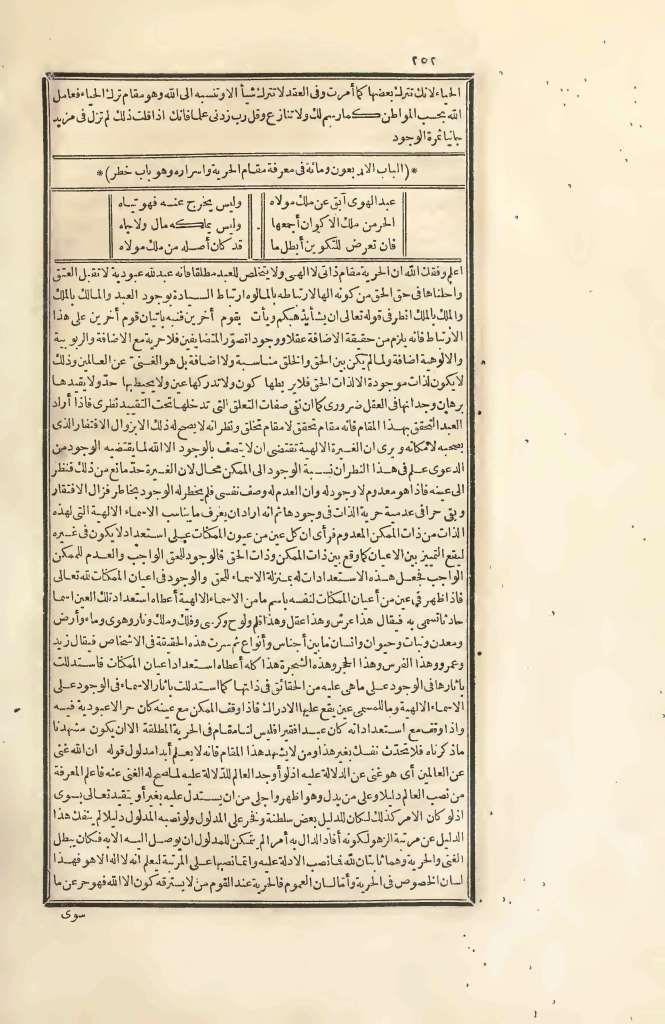 ٢٥٢
الحياء لانك تترك بعضها كما أمرت وفى العقد لا تترك شيأ الا وتنسبه الى الله وهو مقام ترك الحياء فعامل
الله بحسب المواطن كما رسم لك ولا تنازع وقل رب زدنى علما فانك اذا قلت ذلك لم تزل فى مزيد
جانيا ثمرة الوجود
*(الباب الاربعون ومائة فى معرفة مقام الحرية واسراره وهو باب خطر)*
عبد الهوى آبق عن ملك مولاه وليس يخرج عنه فهو تياه
الحر من ملك الاكوان أجمعها وليس يملكه مال ولا جاه
فان تعرض للتكوين أبطل ما قد كان أصله من ملك مولاه
اعلم وفقك الله ان الحرية مقام ذاتى لا الهى ولا يتخلص للعبد مطلقا فانه عبد لله عبودية لا تقبل العتق
واحلناها فى حق الحق من كونه الها لارتباطه بالمألوه ارتباط السيادة بوجود العبد والمالك بالملك
والملك بالملك انظر فى قوله تعالى ان يشأ يذهبكم ويأت بقوم آخرين فنبه باتيان قوم آخرين على هذا
الارتباط فانه يلزم من حقيقة الاضافة عقلا ووجودا تصور المتضايفين فلا حرية مع الاضافة والربوبية
والالوهية اضافة ولما لم يكن بين الحق والخلق مناسبة ولا اضافة بل هو الغنى عن العالمين وذلك
لا يكون لذات موجودة الا لذات الحق فلا يربطها كون ولا تدركها عين ولا يحيط بها حد ولا يقيدها
برهان وجدانها فى العقل ضرورى كما ان نفى صفات التعلق التى تدخلها تحت التقييد نظرى فاذا أراد
العبد التحقق بهذا المقام فانه مقام تحقق لا مقام تخلق ونظر انه لا يصح له ذلك الا بزوال الافتقار الذى
يصحبه لامكانه ويرى ان الغيرة الالهية تقتضى ان لا يتصف بالوجود الا الله لما يقتضيه الوجود من
الدعوى علم فى هذا النظر ان نسبة الوجود الى الممكن محال لان الغيرة حد مانع من ذلك فنظر
الى عينه فاذا هو معدوم لا وجود له وان العدم له وصف نفسى فلم يخطر له الوجود بخاطر فزال الافتقار
وبقى حرا فى عدميته حرية الذات فى وجودها ثم انه اراد ان يعرف ما يناسب الاسماء الالهية التى لهذه
الذات من ذات الممكن المعدوم فرأى ان كل عين من عيون الممكنات على استعداد لا يكون فى غيره
ليقع التمييز بين الاعيان كما وقع بين ذات الممكن وذات الحق فالوجود للحق الواجب والعدم للممكن
الواجب فجعل هذه الاستعدادات له بمنزلة الاسماء للحق والوجود فى اعيان الممكنات لله تعالى
فاذا ظهر فى عين من أعيان الممكنات لنفسه باسم ما من الاسماء الالهية أعطاه استعداد تلك العين اسما
حادثا تسمى به فيقال هذا عرش وهذا عقل وهذا قلم ولوح وكرسى وفلك وملك ونار وهوى وماء وأرض
ومعدن ونبات وحيوان وانسان ما بين أجناس وأنواع ثم سرت هذه الحقيقة فى الاشخاص فيقال زيد
وعمرو وهذا الفرس وهذا الحجر وهذه الشجرة هذا كله أعطاه استعداد اعيان الممكنات فاستدللت
بآثارها فى الوجود على ما هى عليه من الحقائق فى ذاتها كما استدللت بآثار الاسماء فى الوجود على
الاسماء الالهية وما للمسمى عين يقع عليها الادراك فاذا وقف الممكن مع عينه كان حرا لا عبودية فيه
واذا وقف مع استعداداته كان عبدا فقيرا فليس لنا مقام فى الحرية المطلقة الا ان يكون مشهدنا
ما ذكرناه فلا تحدث نفسك بغير هذا ومن لا يشهد هذا المقام فانه لا يعلم أبدا مدلول قوله ان الله غنى
عن العالمين أى هو غنى عن الدلالة عليه اذ لو أوجد العالم للدلالة عليه لما صح له الغنى عنه فاعلم المعرفة
من نصب العالم دليلا وعلى من يدل وهو اظهر واجلى من ان يستدل عليه بغير أو يتقيد تعالى بسوى
اذ لو كان الامر كذلك لكان للدليل بعض سلطنة وفخر على المدلول ولو نصبه المدلول دليلا لم ينفك هذا
الدليل عن مرتبة الزهو لكونه أفاد الدال به أمرا لم يتمكن للمدلول ان يوصل اليه الا به فكان يبطل
الغنى والحرية وهما ثابتان لله فما نصب الادلة عليه وانما نصبها على المرتبة ليعلم انه لا اله الا هو فهذا
لسان الخصوص فى الحرية وأما لسان العموم فالحرية عند القوم من لا يسترقه كون الا الله فهو حر عن ما
سوى